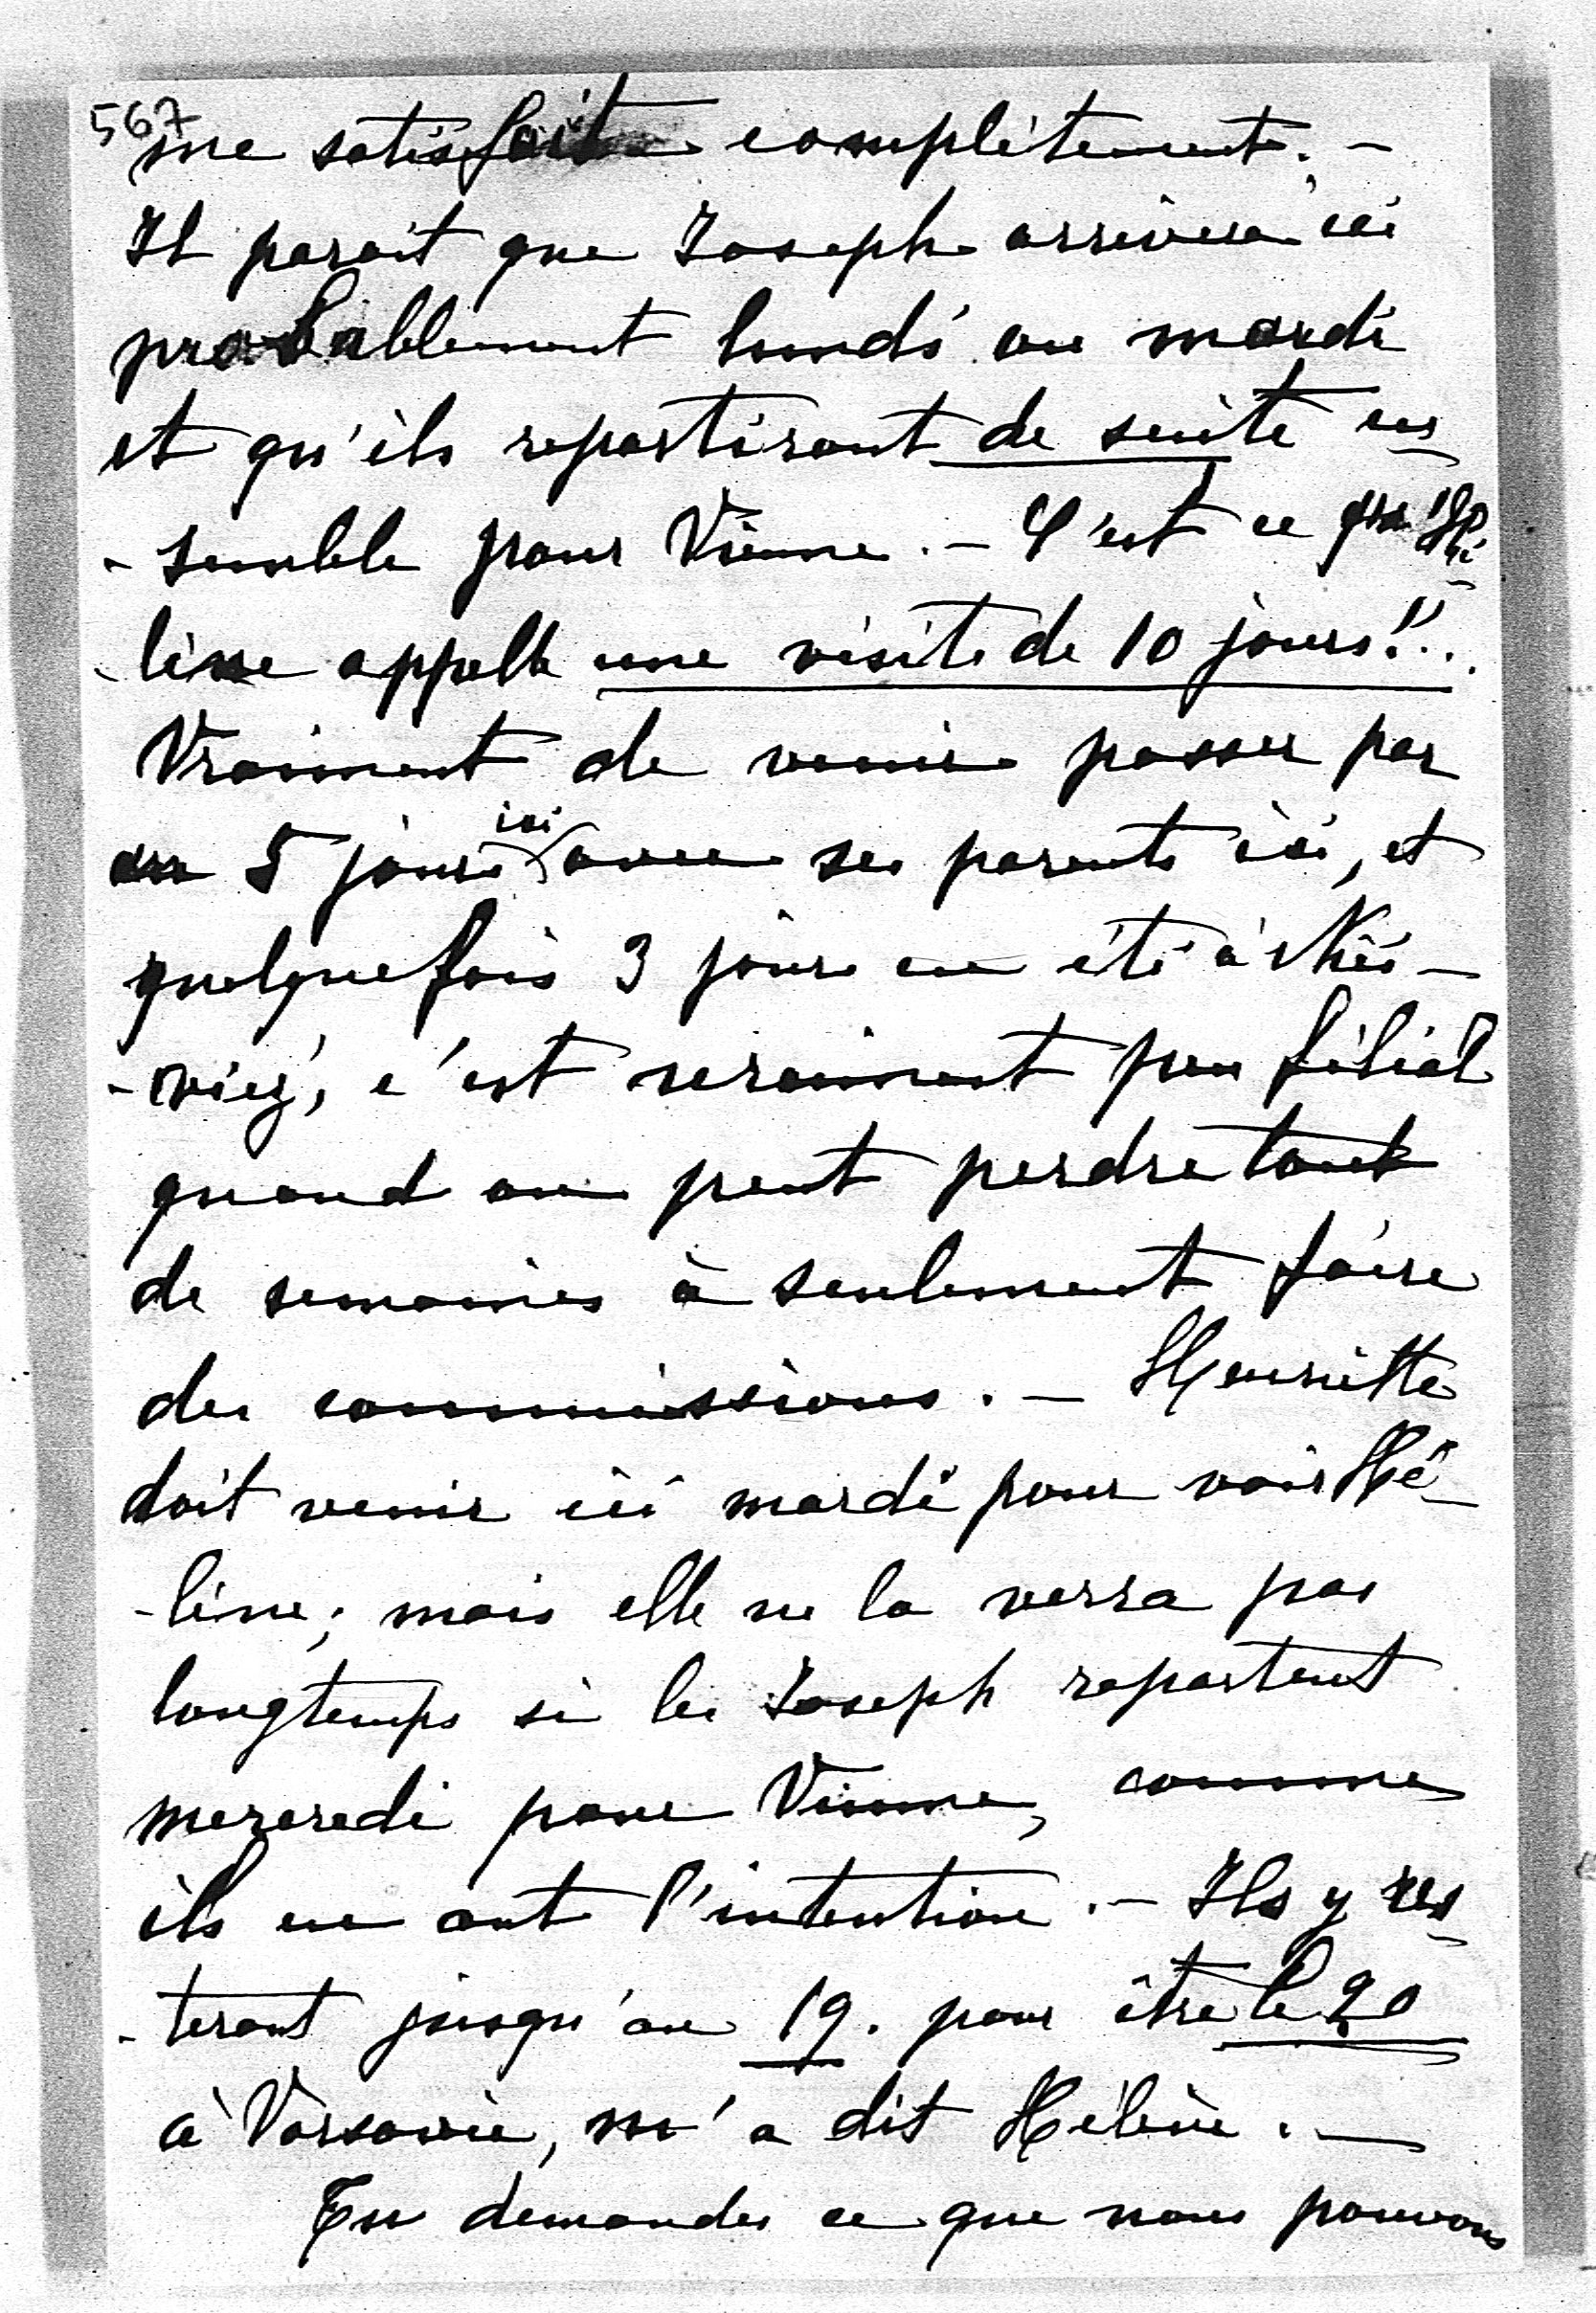 567
me satisfait complètement. -
Il parait que Joseph arrivera ici
probablement lundi ou mardi
et qu'ils repartiront de suite en
- semble pour Vienne. - C'est ce qu'Hé
- lène appelle une visite de 10 jours!!..
Vraiment de venir passer par
an 5 jours ici avec ses parents ici, et
quelquefois 3 jours en été à Nies -
- viez, c'est vraiment peu filial
quand on peut perdre tant
de semaines à seulement faire
des commissions. - Henriette
doit venir ici mardi pour voir Hé -
- lène; mais elle ne la verra pas
longtemps si les Joseph repartent
mercredi pour Vienne, comme
ils en ont l'intention. - Ils y res
- teront jusqu'au 19. pour être le 20
à Varsovie, m'a dit Hélène. -
Tu demandes ce que nous pouvons